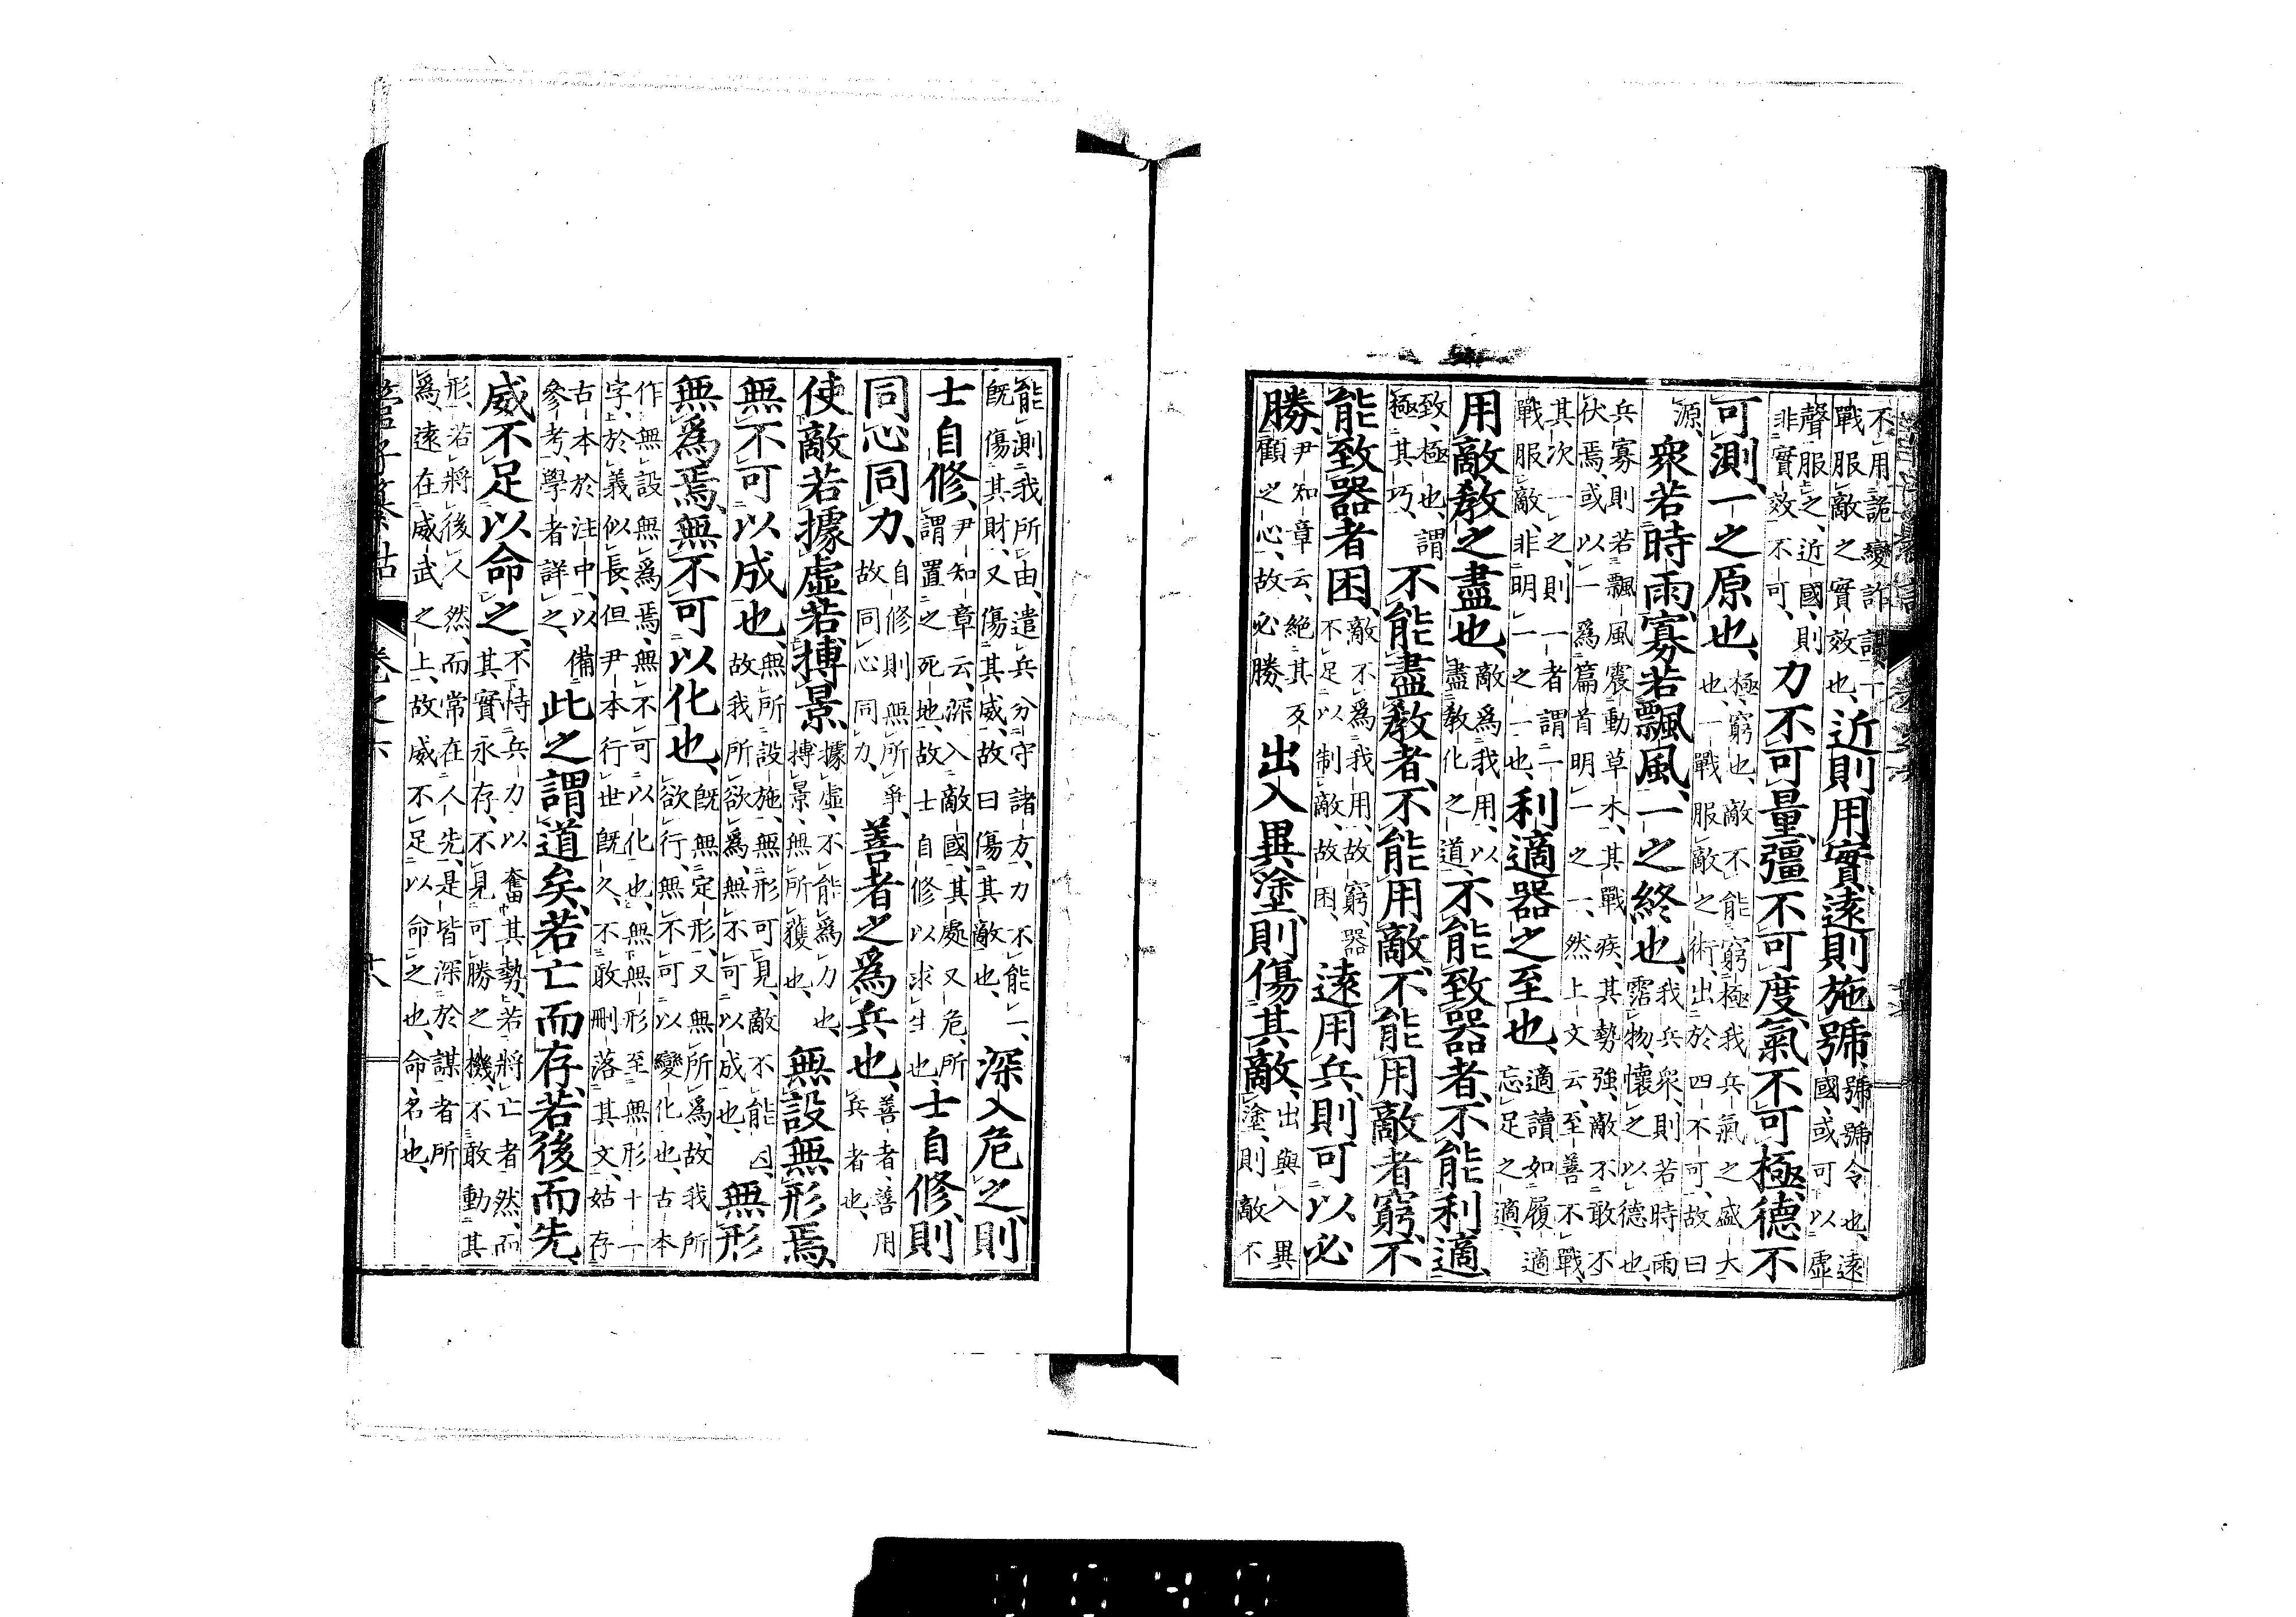 不用詭變詐謀
戰服敵之實效也、近則用實、遠則施號、號號令也、遠國、或可以虛
聲服之、近國、則非實效不可、力不可量、彊不可度、氣不可極、德不
可測、一之原也、極、窮也、敵不能窮極我兵氣之盛大也、一戰服敵之術、出於四不可、故曰
源、衆若時雨、寡若飄風、一之終也、我兵衆、則若時雨霑物、懷之以德也、
兵寡則若飄風震動草木、其戰疾、其勢強、敵不敢不伏焉、或以一爲篇首明一之一、然上文云、至善不戰、
其次一之、則一者謂一戰服敵、非明一之一也、利適器之至也、適讀如履適忘足之適、
用敵教之盡也、敵爲我用、以盡教化之道、不能致器者、不能利適、
致、極也、謂極其巧、不能盡教者、不能用敵、不能用敵者窮、不
能致器者困、敵不爲我用、故窮、器不足以制敵、故困、遠用兵、則可以必
勝、尹知章云、絕其反顧之心、故必勝、出入異塗、則傷其敵、出與入異塗、則敵不
能測我所由、遣兵分守諸方、力不能一、既傷其財、又傷其威、故曰傷其敵也、深入危之、則
士自修、尹知章云、深入敵國、其處又危、所謂置之死地、故士自修以求生也、士自修、則
同心同力、自修則無所爭、故同心同力、善者之爲兵也、善者、善用兵者也、
使敵若據虛、若搏景、據虛、不能爲力也、搏景、無所獲也、無設無形焉、
無不可以成也、無所設施、無形可見、敵不能因、故我所欲爲、無不可以成也、無形
無爲焉、無不可以化也、既無定形、又無所爲、故我所欲行無不可以變化也、古本
作無設無爲焉、無不可以化也、無無形至無形十一字、於義似長、但尹本行世既久、不敢刪落其文、姑存
古本於注中、以備參考、學者詳之、此之謂道矣、若亡而存、若後而先、
威不足以命之、不恃兵力以奮其勢、若將亡者然、而其實永存、不見可勝之機、不敢動其
形、若將後人然、而常在人先、是皆深於謀者所爲、遠在威武之上、故威不足以命之也、命、名也、
管子纂詁 卷之六 十八